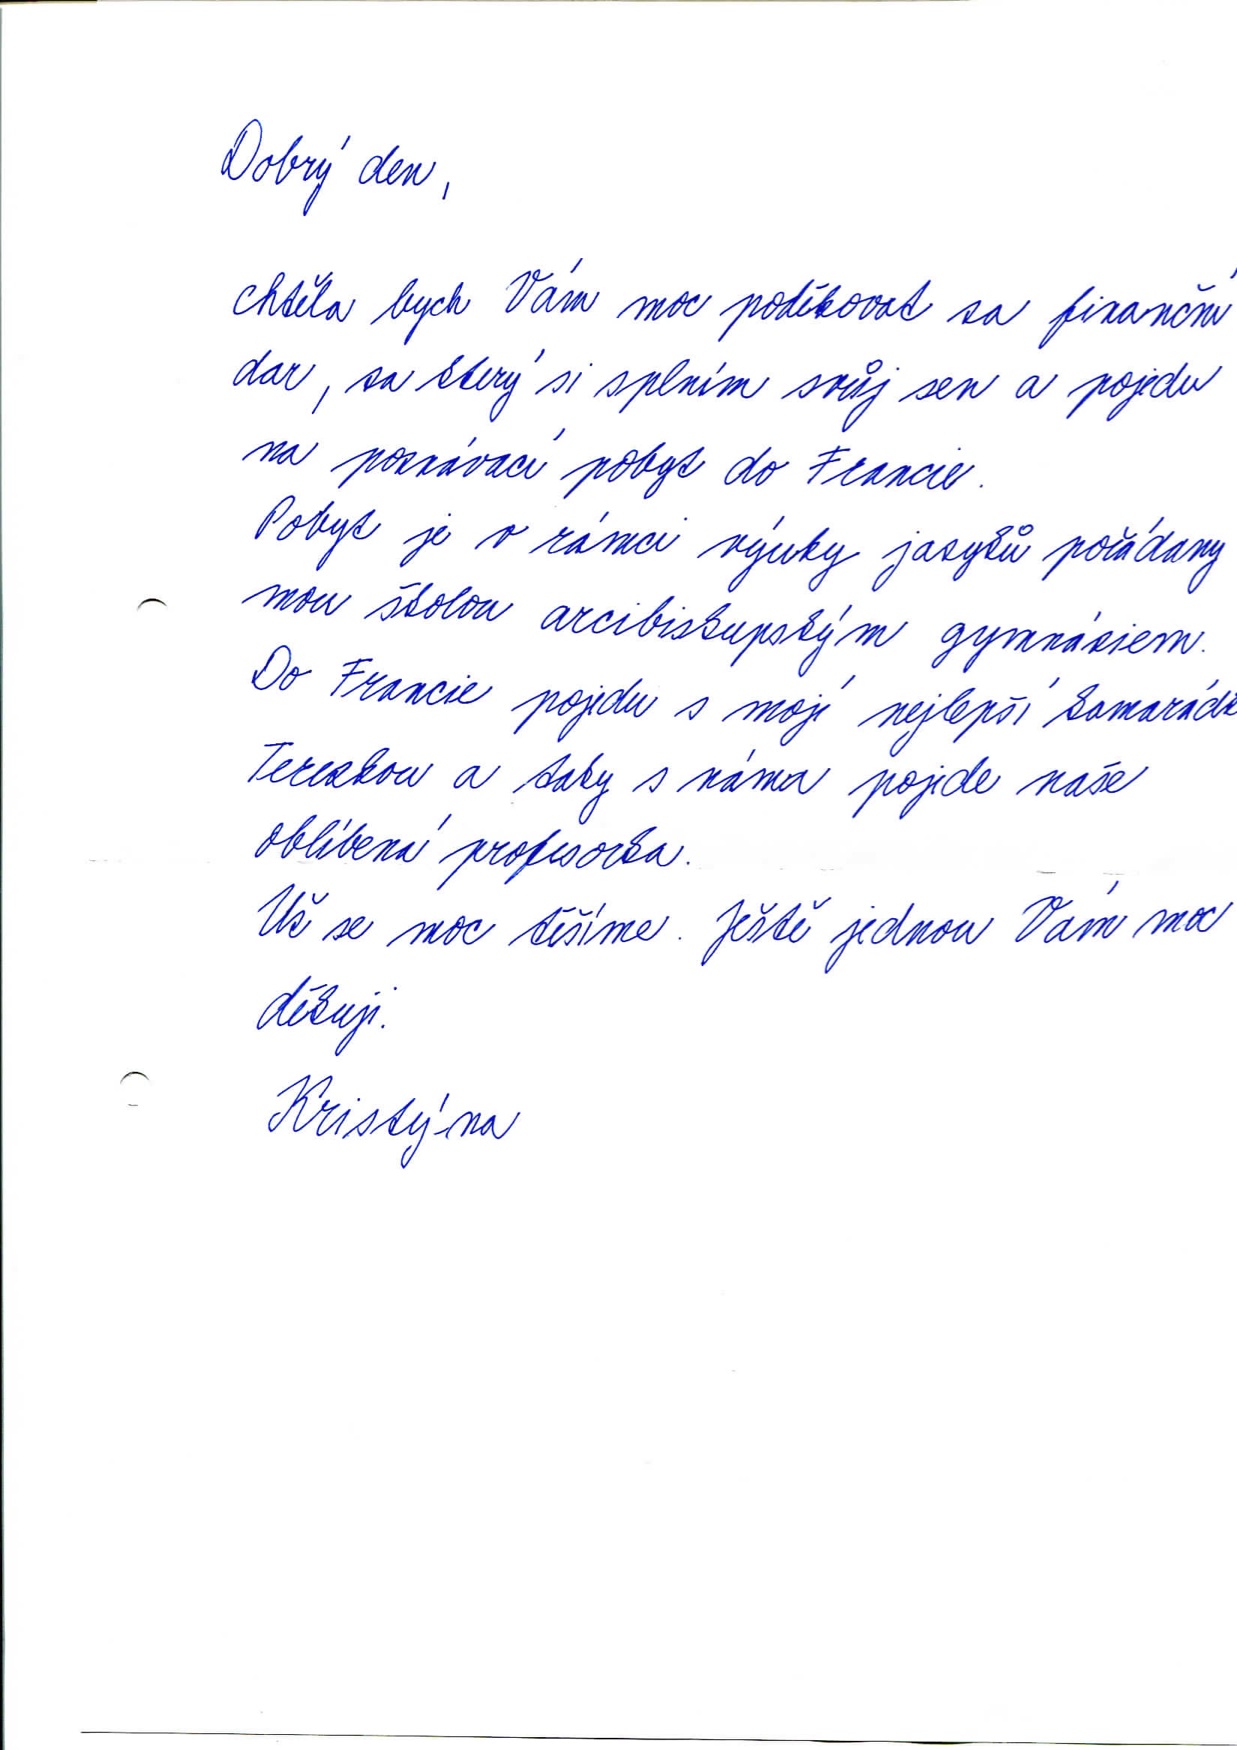 Dobrý den,
chtěla bych Vám moc poděkovat za finanční
dar, za který si splním svůj sen a pojedu
na poznávací pobyt do Francie.
Pobyt je v rámci výuky jazyků pořádany
mou školou arcibiskupským gymnáziem.
Do Francie pojedu s mojí nejlepší kamarádk
Terezkou a taky s náma pojede naše
oblíbená profesorka.
Už se moc těšíme. Ještě jednou Vám moc
děkuji.
Kristýna